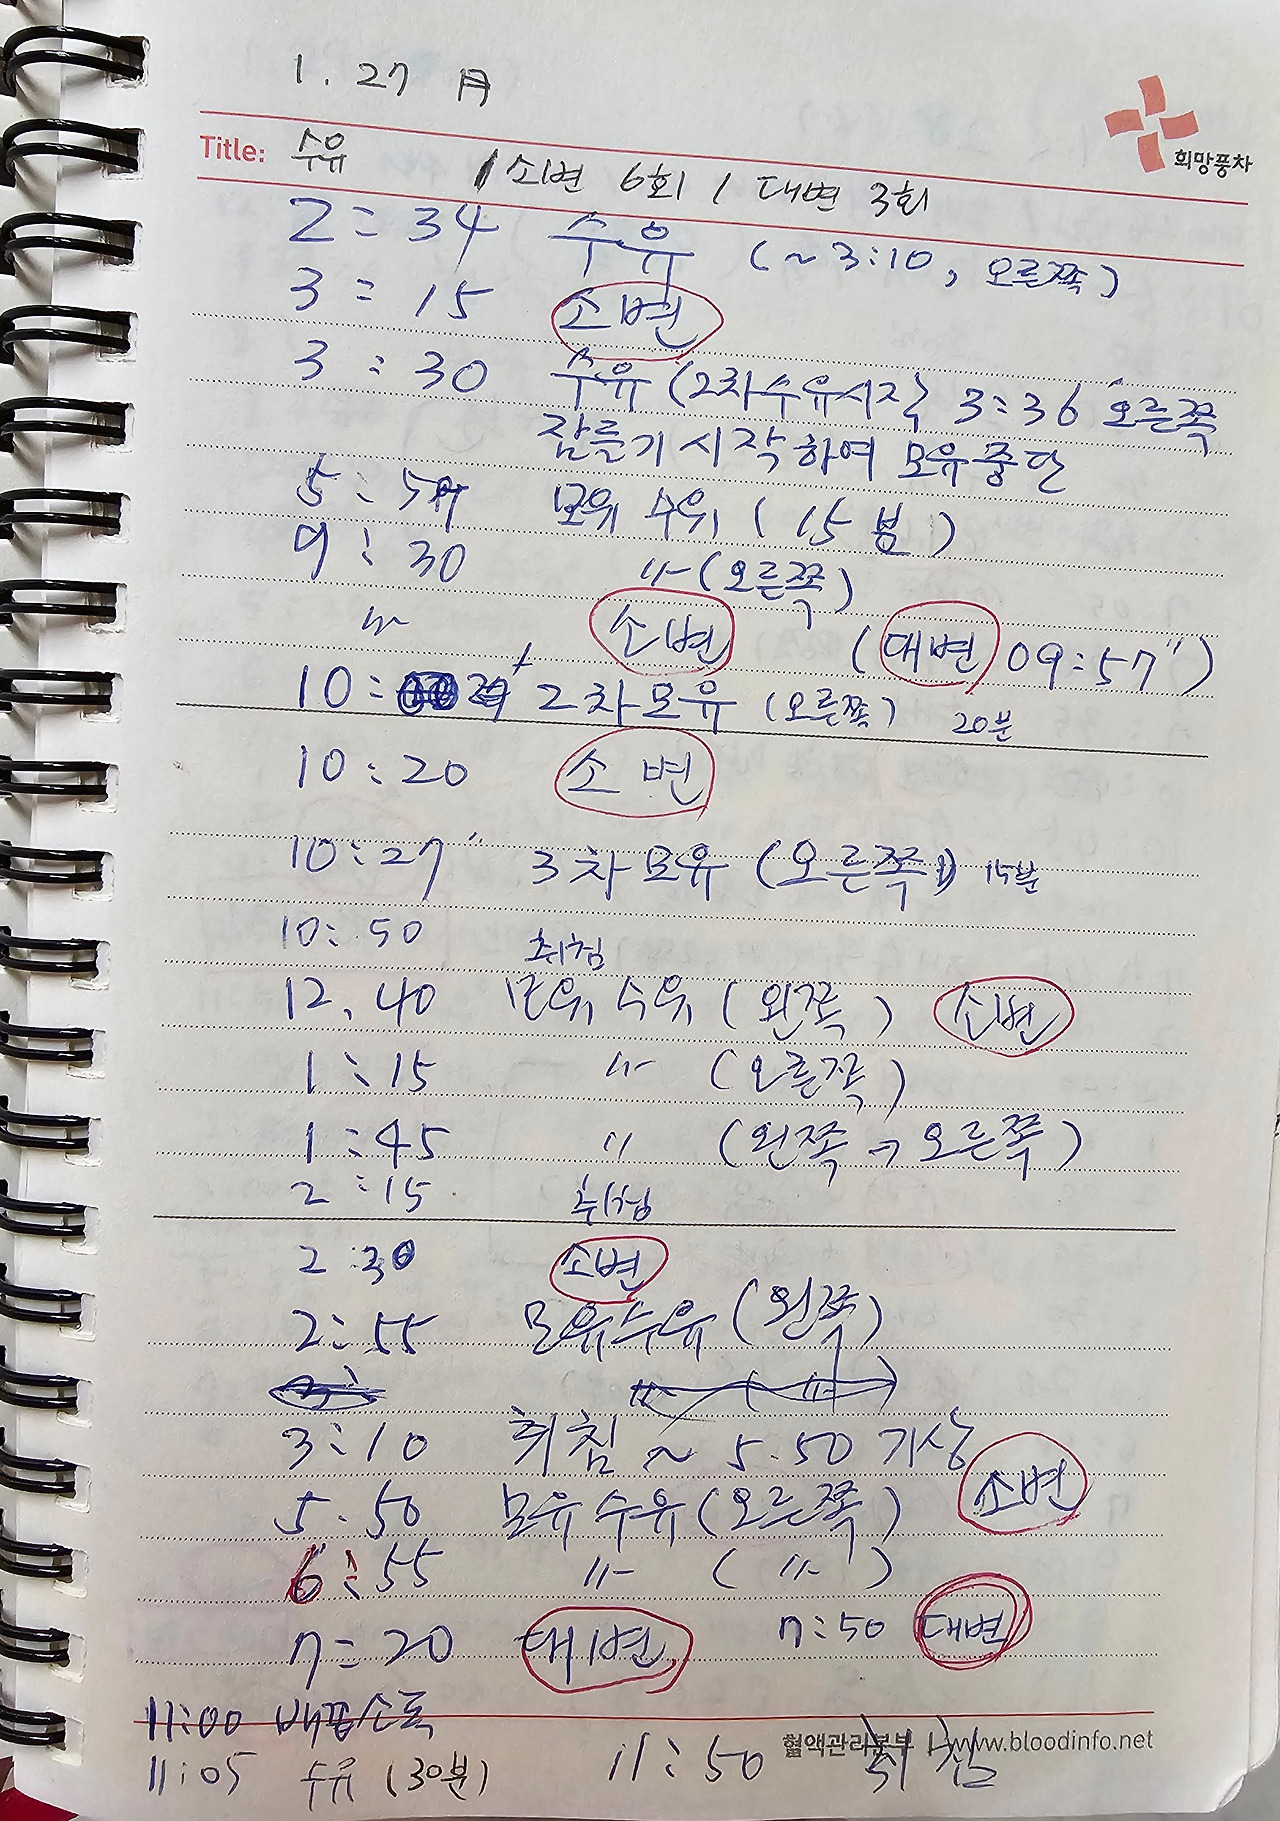 1. 27 月
희망풍차
Title: 수유 / 소변 6회 / 대변 3회
2:34 수유 (~3:10, 오른쪽)
3:15 소변
3:30 수유 (2차수유시작, 3:36 오른쪽
잠들기 시작하여 모유중단
5: 모유 수유 (15분)
9:30 〃 (오른쪽)
〃 소변 (대변 09:57")
10: 2차모유 (오른쪽) 20분
10:20 소변
10:27" 3차모유 (오른쪽) 15분
10:50 취침
12.40 모유수유 (왼쪽) 소변
1:15 〃 (오른쪽)
1:45 〃 (왼쪽→오른쪽)
2:15 취침
2:30 소변
2:55 모유수유 (왼쪽)
3:10 취침 ~ 5.50 기상
5.50 모유수유 (오른쪽) 소변
6:55 〃 ( 〃 )
7:20 대변 7:50 대변
11:00 배꼽소독
혈액관리본부 | www.bloodinfo.net
11:05 수유 (30분) 11:50 취침